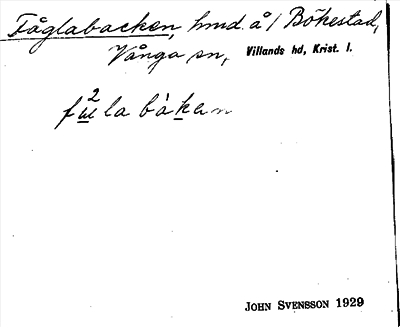 Fåglabacken, hmd. å / Bökestad,
Vånga sn, Villands hd, Krist. l.
JOHN SVENSSON 1929